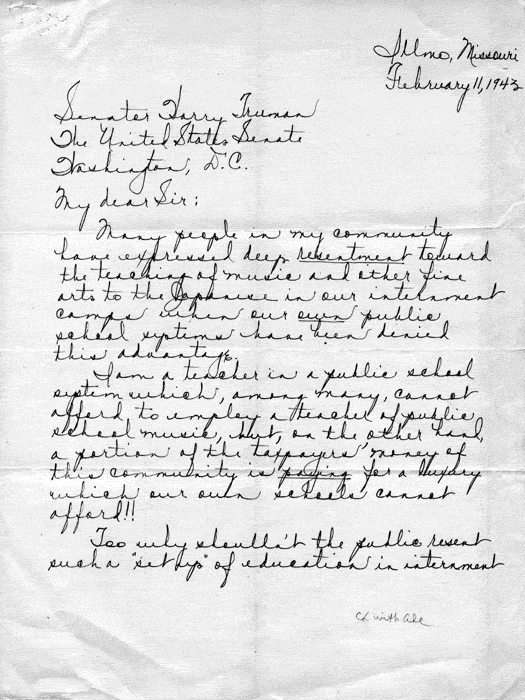 Illmo, Missouri
February 11, 1943
Senator Harry Truman
The United States Senate
Washington, D.C.
My dear Sir:
Many people in my community
have expressed deep resentment toward
the teaching of music and other fine
arts to the Japanese in our internment
camps when our own public
school systems have been denied
this advantage.
I am a teacher in a public school
system which, among many, cannot
afford to employ a teacher of public
school music, but, on the other hand,
a portion of the taxpayers' money of
this community is paying for a luxury
which our own schools cannot
afford!!
Too why shouldn't the public resent
such a "set up" of education in internment